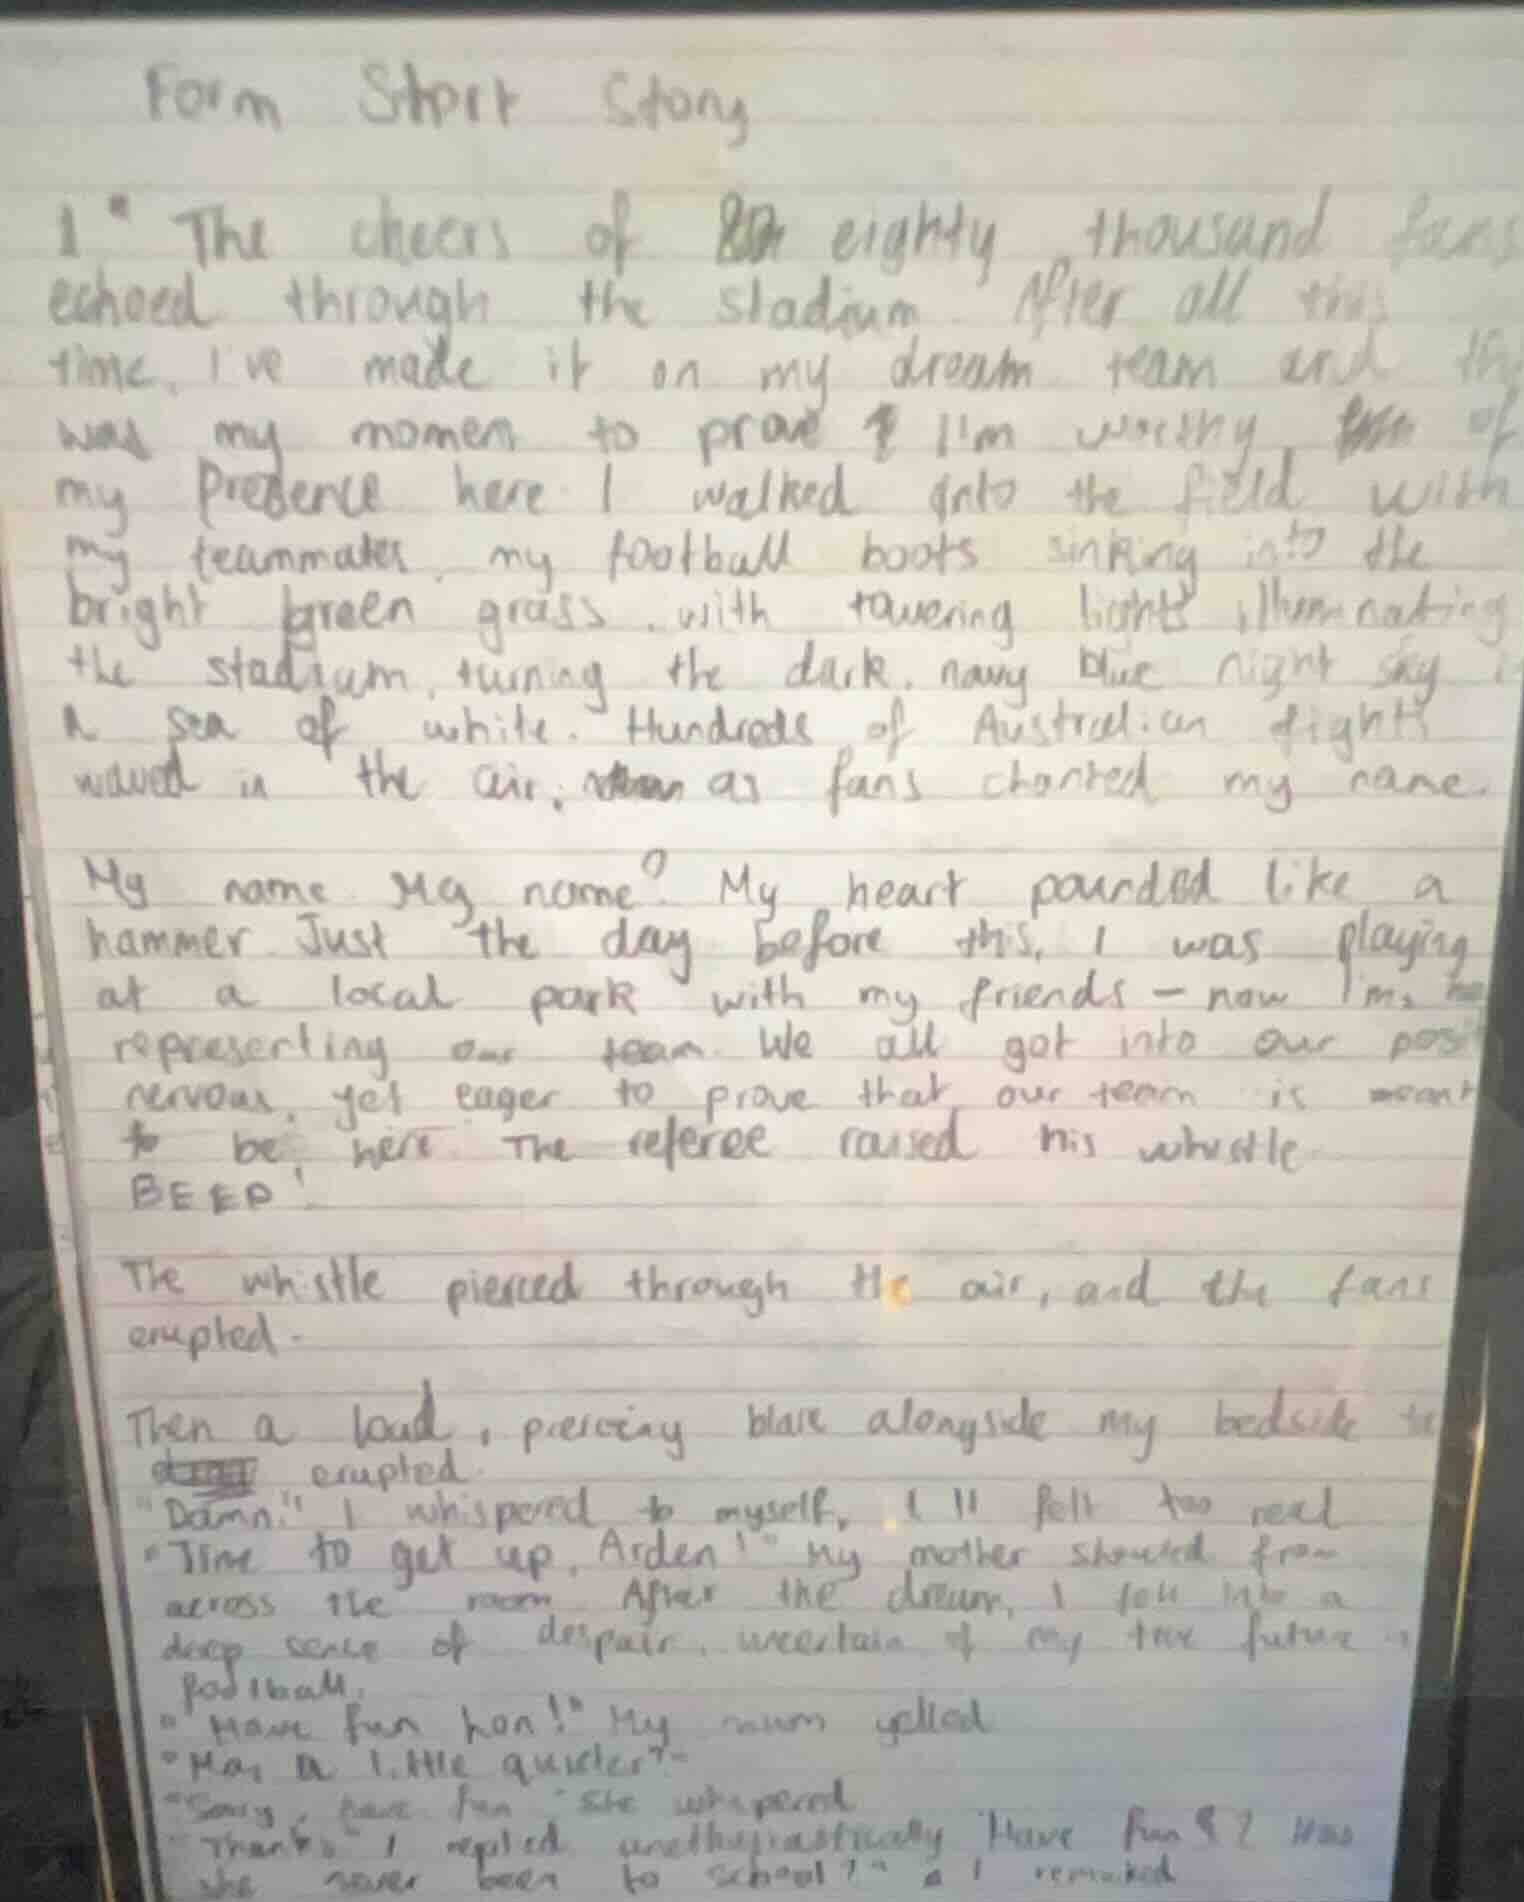 Form Short Story
1 " The cheers of eighty thousand fans
echoed through the stadium. After all this
time, I've made it on my dream team and
was my moment to prove I'm worthy of
my presence here. I walked onto the field with
my teammates, my football boots sinking into the
bright green grass, with towering lights illuminating
the stadium, turning the dark, navy blue night sky
a sea of white. Hundreds of Australian
waved in the air, as fans chanted my name.
My name. My name? My heart pounded like a
hammer. Just the day before this, I was playing
at a local park with my friends – now I'm
representing our team. We all got into our
nervous, yet eager to prove that our team is meant
to be here. The referee raised his whistle.
BEEP!
The whistle pierced through the air, and the fans
erupted.
Then a loud, piercing blare alongside my bedside
erupted.
"Damn!" I whispered to myself, felt too real
"Time to get up, Arden!" My mother shouted from
across the room. After the dream, I fell into a
deep sense of despair, uncertain of my future
football.
"Have fun hon!" My mum yelled
a little quieter?"
"Sorry, have fun" she whispered
"Thanks" I replied Have fun? Has
she never been to school?" I remarked